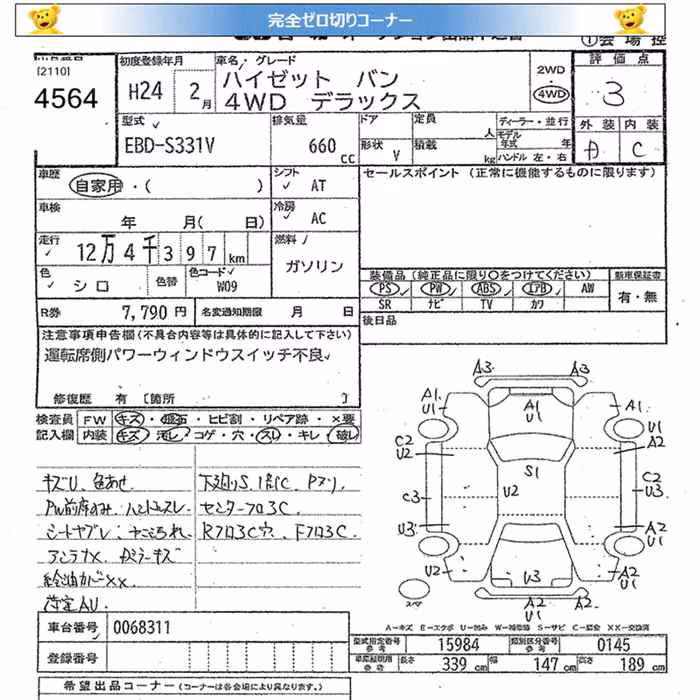 完全ゼロ切りコーナー
[2110]
4564
初度登録年月
H24 2月
車名・グレード
ハイゼット バン
4WD デラックス
2WD
4WD
評価点
3
外装 内装
A C
型式
EBD-S331V
排気量
660 cc
ドア
定員
人
形状
V
積載
kg
ディーラー・並行
モデル年式 年
ハンドル 左・右
車歴
自家用・( )
シフト
AT
セールスポイント(正常に機能するものに限ります)
車検
年 月( 日)
冷房
AC
走行
12万4千397km
燃料
ガソリン
色
シロ
色替
色コード
W09
装備品(純正品に限り○をつけてください)
新車保証書
PS PW ABS エアB AW
SR ナビ TV カワ
有・無
R券
7,790円
名変通知期限 月 日
後日品
注意事項申告欄(不具合内容等は具体的に記入して下さい)
運転席側パワーウィンドウスイッチ不良
修復歴 有 [箇所 ]
検査員 FW キズ・飛石・ヒビ割・リペア跡・×要
記入欄 内装 キズ・汚レ・コゲ・穴・スレ・キレ・破レ
キズU 色あせ
下廻りS
ハンドルスレ
センターフロ3C
シートヤブレ
Rフロ3C穴 Fフロ3C
アンテナX
給油カバーXX
A3 A3
A1 U1
A1 U1
A1
U1
C2 U2
A2
S1
U2
C2 U3
C3
U3
A2 U1
U2
U3
A2 U1
A2 U1
スペア
A−キズ E−エクボ U−凹み W−補修跡 S−サビ C−腐食 XX−交換済
車台番号 0068311
登録番号
型式指定番号 参考 15984
類別区分番号 参考 0145
長さ 339 cm
幅 147 cm
高さ 189 cm
希望出品コーナー(コーナーは各会場により異なります)